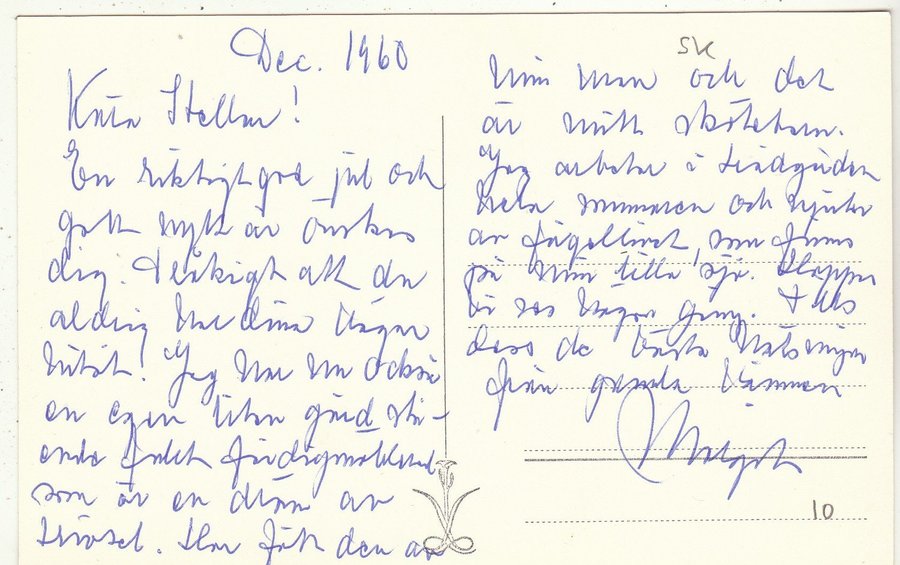 Dec. 1960
Kära Stellan!
En riktigt god jul och
gott nytt år önskas
dig. Tråkigt att du
aldrig har dina vägar
hitåt! Jag har nu också
en egen liten gård stå-
ende fullt färdigmöblerad
som är en dröm av
trivsel. Har fått den av
SK
min man och det
är mitt skötebarn.
Jag arbetar i trädgården
hela sommaren och njuter
av fågellivet, som finns
på min lilla sjö. Hoppas
vi ses någon gång. Tills
dess de bästa hälsningar
från gamla vännen
Margit
10